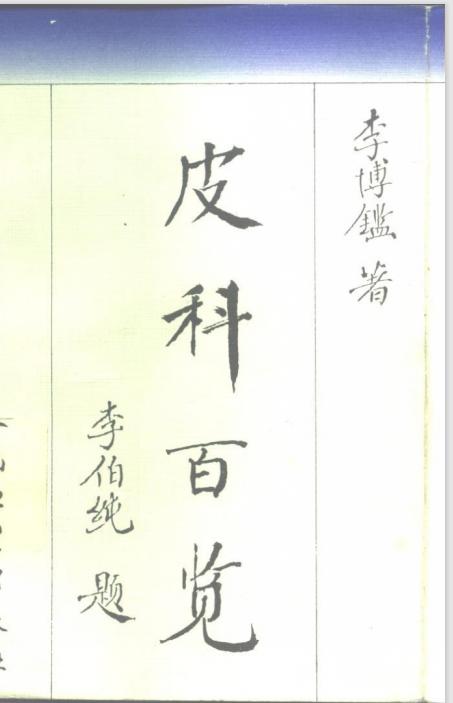 李博鑑 著
皮科百览
李伯纯 题